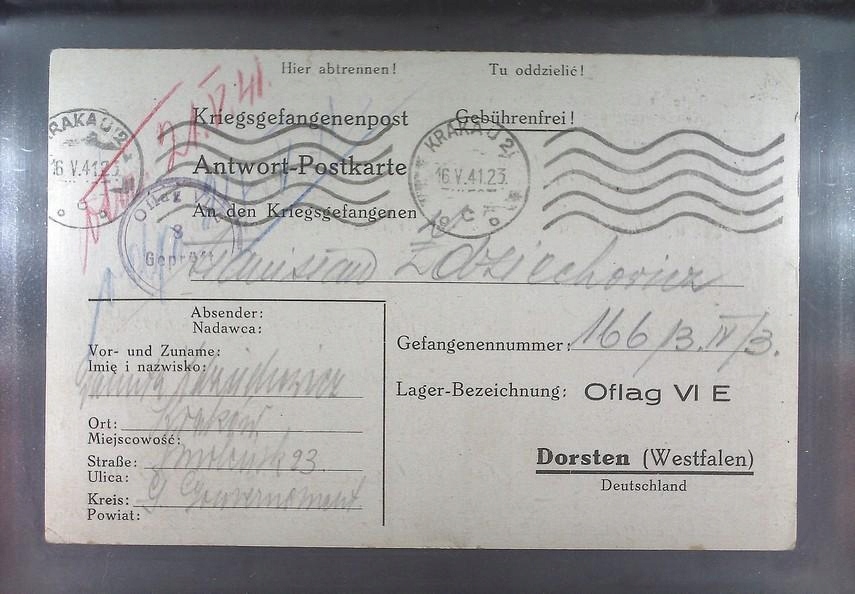 Hier abtrennen! Tu oddzielić!
21.V.41.
Kriegsgefangenenpost Gebührenfrei!
KRAKAU 2
16.V.41.23.
KRAKAU 2
16.V.41.23.
C
Antwort-Postkarte
Oflag
8
Geprüft
An den Kriegsgefangenen
Stanisław Zdziechowicz
Absender:
Nadawca:
Vor- und Zuname:
Imię i nazwisko:
Zdziechowicz
Ort: Kraków
Miejscowość:
Straße: Smoleńsk 23.
Ulica:
Kreis: G Gouvernement
Powiat:
Gefangenennummer: 166/3.IV/3.
Lager-Bezeichnung: Oflag VI E
Dorsten (Westfalen)
Deutschland